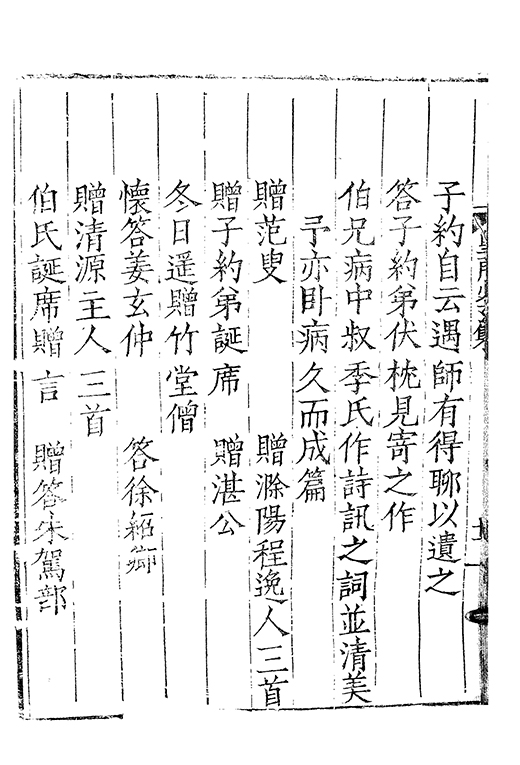 子約自云遇師有得聊以遺之
答子約弟伏枕見寄之作
伯兄病中叔季氏作詩訊之詞並清美
予亦卧病久而成篇
贈范叟 贈滁陽程逸人三首
贈子約弟誕席 贈湛公
冬日遥贈竹堂僧
懷答姜玄仲 答徐紹卿
贈清源王人三首
伯氏誕席贈言 贈答朱駕部